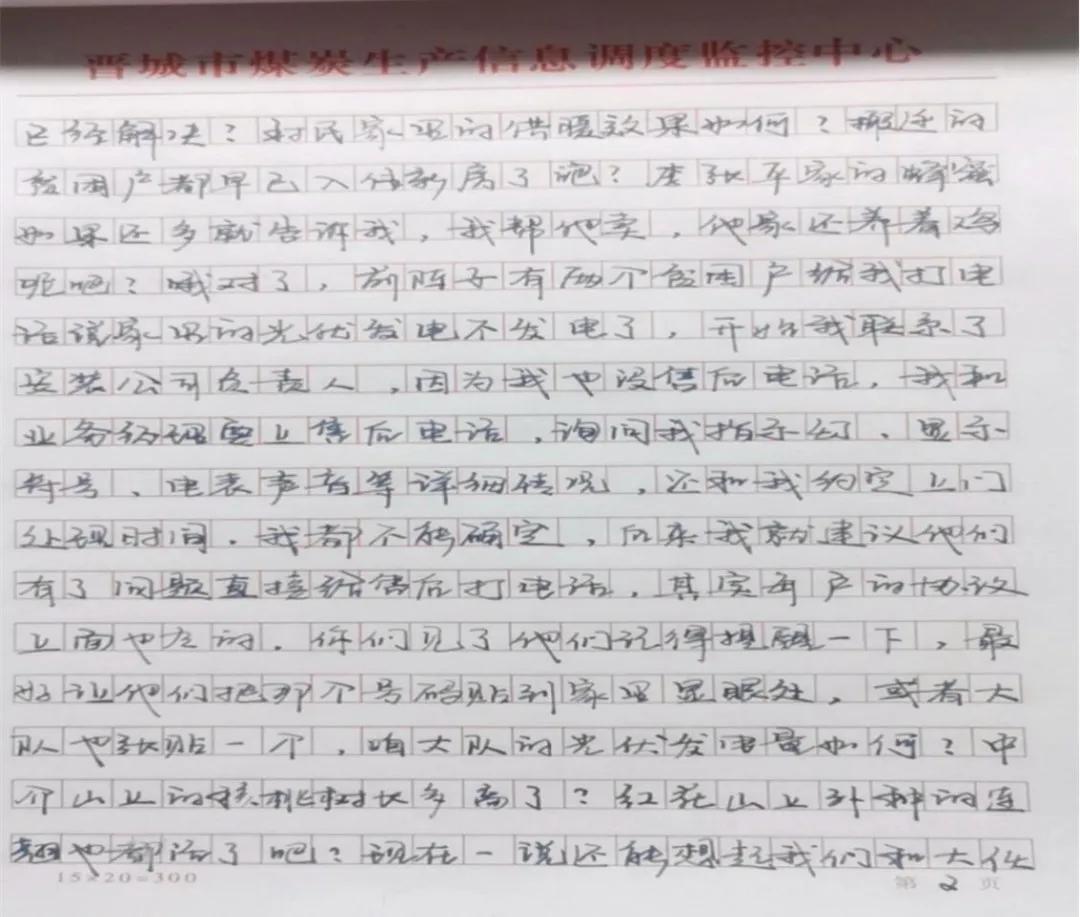 晋城市煤炭生产信息调度监控中心
已经解决？村民家里的供暖效果如何？搬迁的
贫困户都早已入住新房了吧？李张平家的蜂蜜
如果还多就告诉我，我帮他卖，他家还养着鸡
呢吧？哦对了，前阵子有两个贫困户给我打电
话说家里的光伏发电不发电了，开始我联系了
安装公司负责人，因为我也没售后电话，我和
业务经理要上售后电话，询问我指示灯、显示
符号、电表声音等详细情况，还和我约定上门
处理时间，我都不能确定，后来我就建议他们
有了问题直接给售后打电话，其实每户的协议
上面也有的，你们见了他们记得提醒一下，最
好让他们把那个号码贴到家里显眼处，或者大
队也张贴一个，咱大队的光伏发电量如何？中
个山上的核桃树长多高了？红花山上补种的连
翘也都活了吧？现在一说还能想起我们和大伙
15×20=300
第 2 页